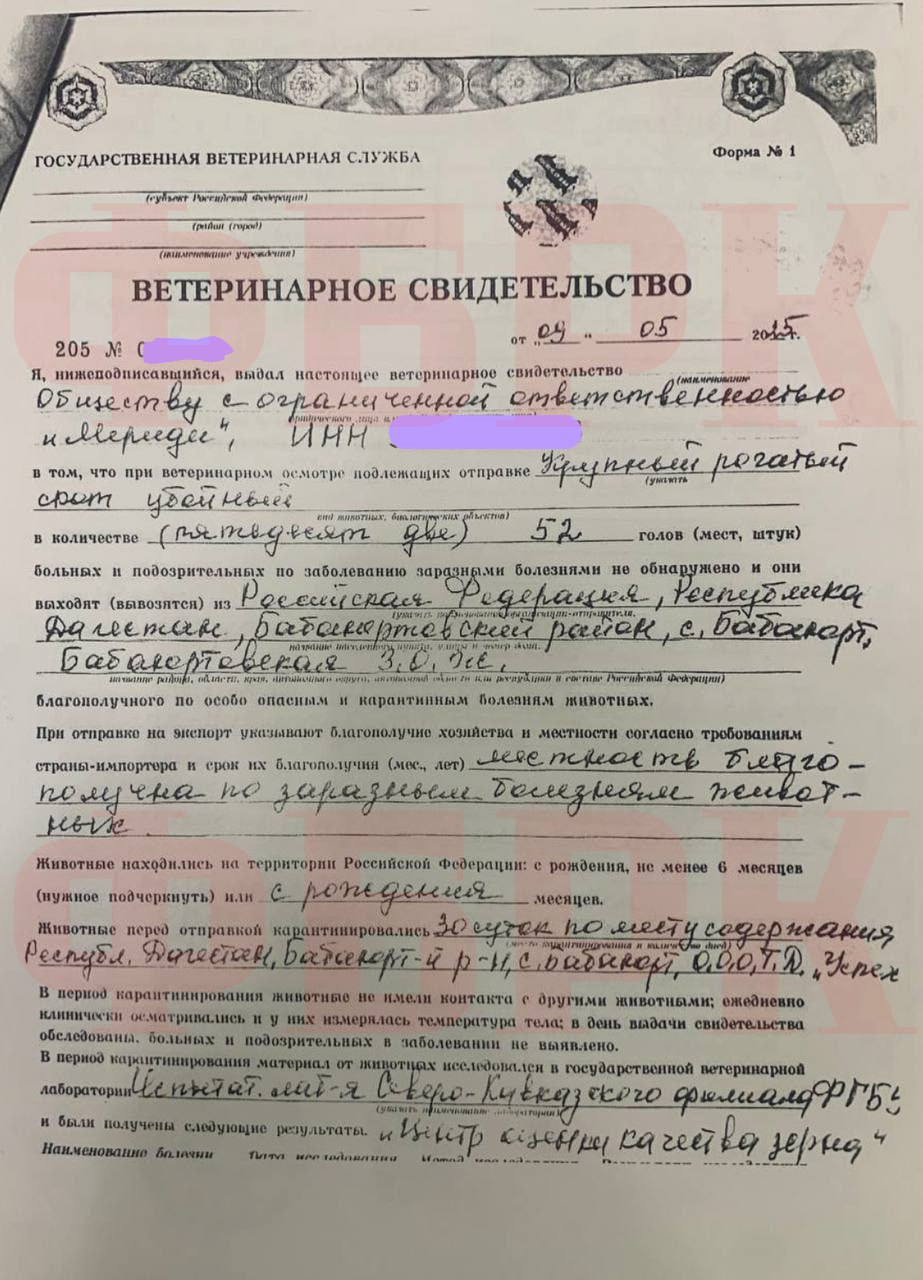 ГОСУДАРСТВЕННАЯ ВЕТЕРИНАРНАЯ СЛУЖБА
Форма № 1
(субъект Российской Федерации)
(район (город)
(наименование учреждения)
ВЕТЕРИНАРНОЕ СВИДЕТЕЛЬСТВО
205 №
от „09" 05 2025г.
Я, нижеподписавшийся, выдал настоящее ветеринарное свидетельство
(наименование
Обществу с ограниченной ответственностью
„Мериди", ИНН
в том, что при ветеринарном осмотре подлежащих отправке Крупный рогатый
(указать
скот убойный
вид животных, биологических объектов)
в количестве (пятьдесят две) 52 голов (мест, штук)
больных и подозрительных по заболеванию заразными болезнями не обнаружено и они
выходят (вывозятся) из Российская Федерация, Республика
Дагестан, Бабаюртовский район, с. Бабаюрт,
название населенного пункта, улица и номер дома.
Бабаюртовская З.О.Ж.
название района, области, края, автономного округа, автономной области или республики в составе Российской Федерации)
благополучного по особо опасным и карантинным болезням животных.
При отправке на экспорт указывают благополучие хозяйства и местности согласно требованиям
страны-импортера и срок их благополучия (мес., лет) местность благо-
получна по заразным болезням живот-
ных
Животные находились на территории Российской Федерации: с рождения, не менее 6 месяцев
(нужное подчеркнуть) или с рождения месяцев.
Животные перед отправкой карантинировались 30 суток по месту содержания
(место карантинирования и количество дней)
Республ. Дагестан, Бабаюрт-й р-н, с. Бабаюрт, О.О.О, Т.Д. „Успех
В период карантинирования животные не имели контакта с другими животными; ежедневно
клинически осматривались и у них измерялась температура тела; в день выдачи свидетельства
обследованы, больных и подозрительных в заболевании не выявлено.
В период карантинирования материал от животных исследовался в государственной ветеринарной
лаборатории Испытат. лаб-я Северо-Кавказского филиала ФГБУ
(указать наименование лаборатории)
и были получены следующие результаты. „Центр оценки качества зерна"
Наименование болезни Дата исследования Метод исследования
ФБРК
ФБРК